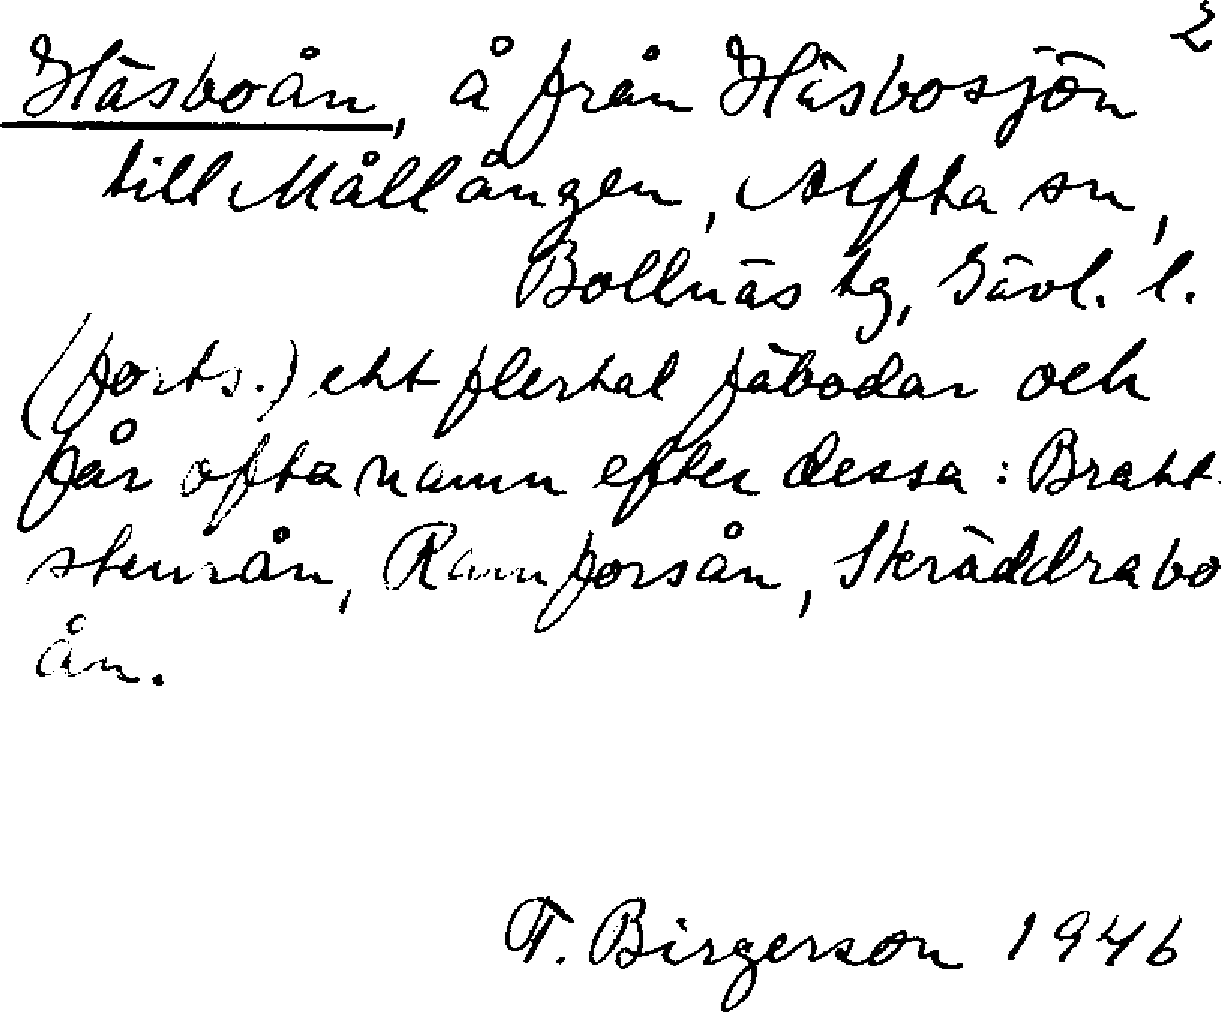 2
Häsboån, å från Häsbosjön
till Mållången, Alfta sn,
Bollnäs tg, Gävl. l.
(forts.) ett flertal fäbodar och
får ofta namn efter dessa: Bratt-
stensån, Ramforsån, Skräddrabo
ån.
F. Birgerson 1946